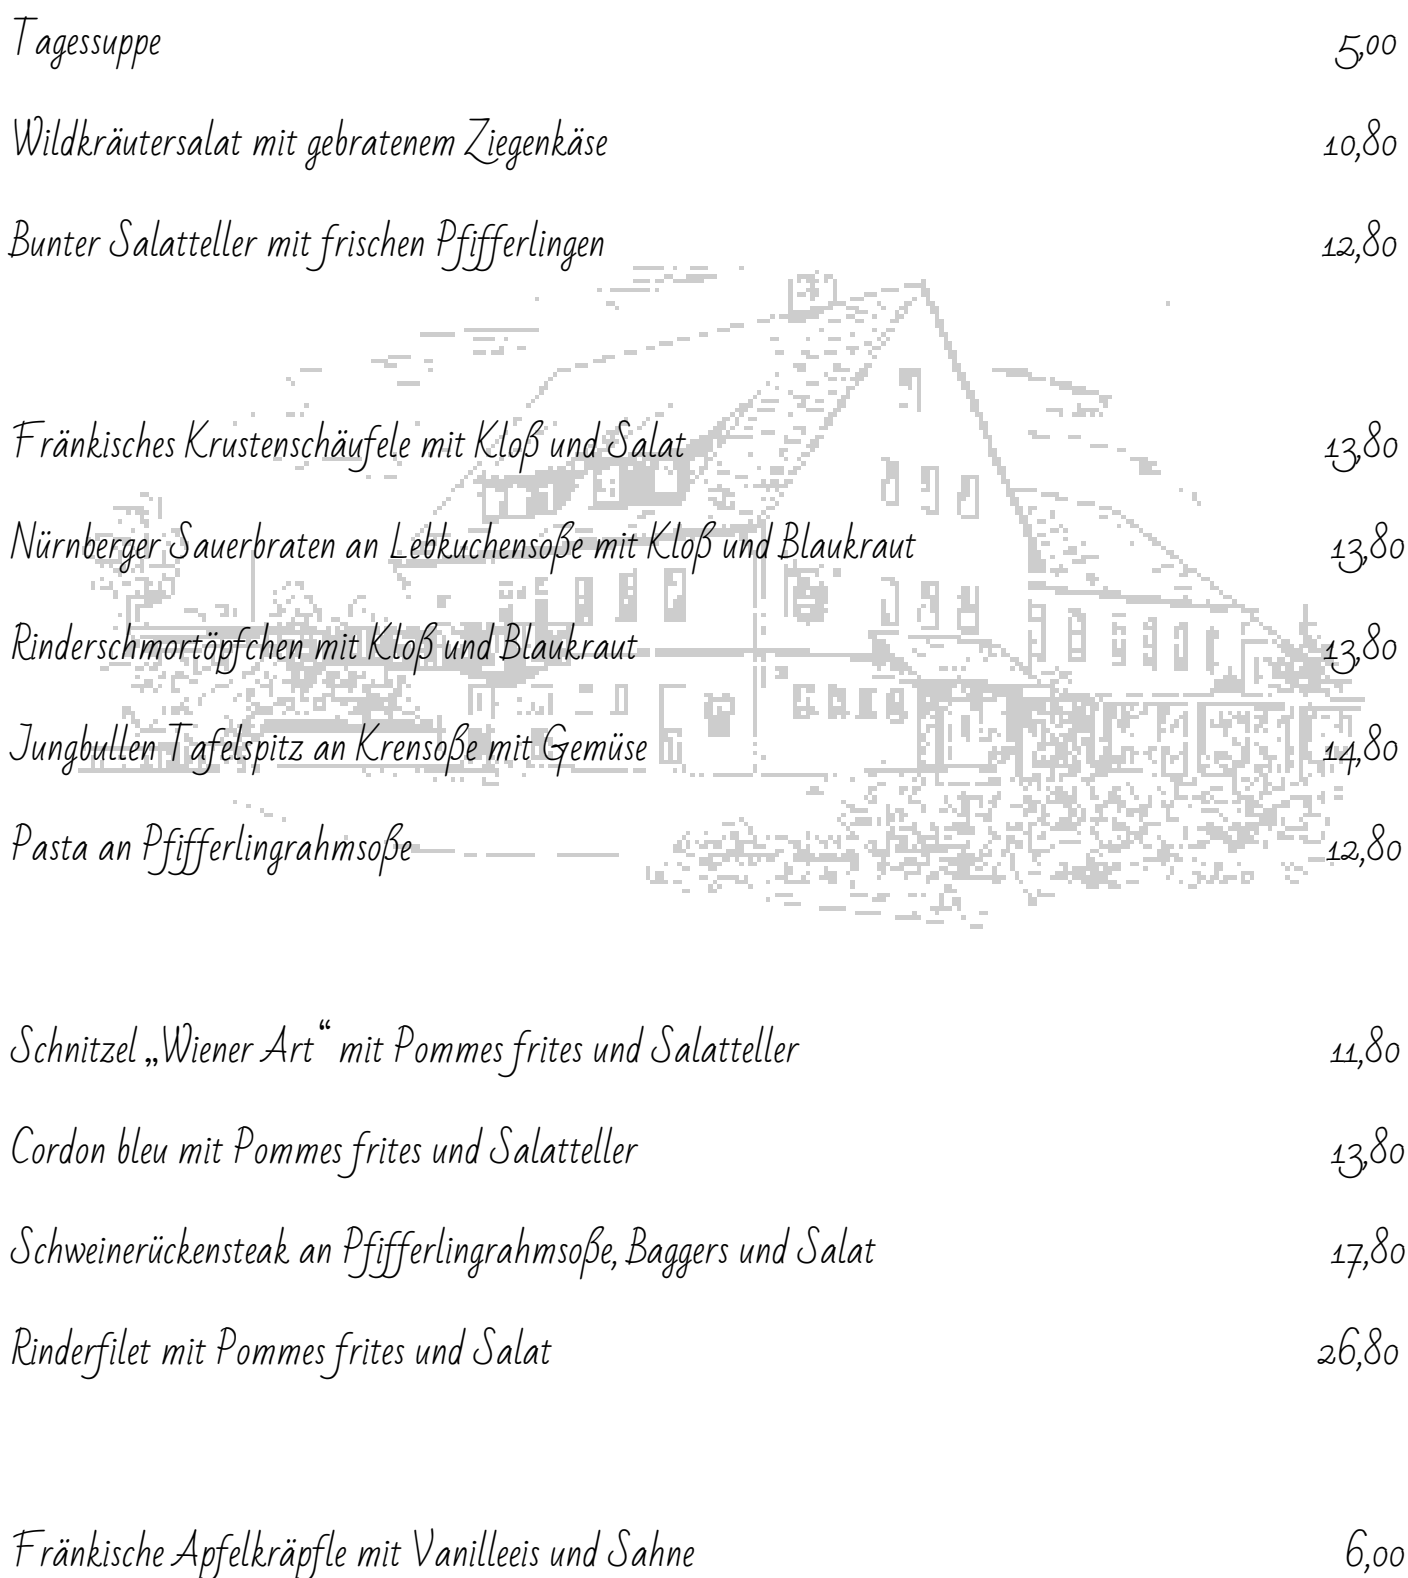 Tagessuppe 5,00
Wildkräutersalat mit gebratenem Ziegenkäse 10,80
Bunter Salatteller mit frischen Pfifferlingen 12,80
Fränkisches Krustenschäufele mit Kloß und Salat 13,80
Nürnberger Sauerbraten an Lebkuchensoße mit Kloß und Blaukraut 13,80
Rinderschmortöpfchen mit Kloß und Blaukraut 13,80
Jungbullen Tafelspitz an Krensoße mit Gemüse 14,80
Pasta an Pfifferlingrahmsoße 12,80
Schnitzel „Wiener Art“ mit Pommes frites und Salatteller 11,80
Cordon bleu mit Pommes frites und Salatteller 13,80
Schweinerückensteak an Pfifferlingrahmsoße, Baggers und Salat 17,80
Rinderfilet mit Pommes frites und Salat 26,80
Fränkische Apfelkräpfle mit Vanilleeis und Sahne 6,00